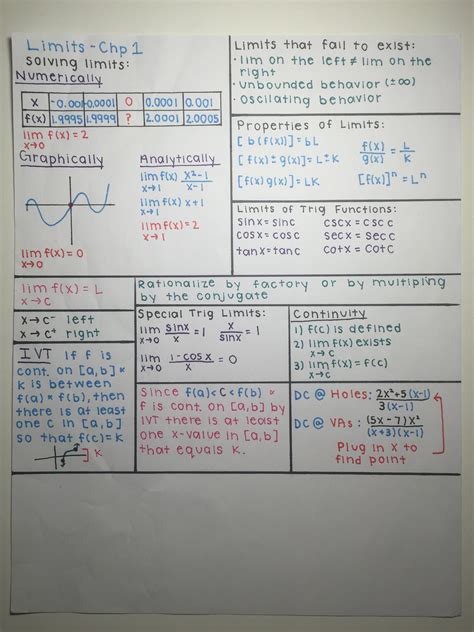 Limits - Chp 1
Solving limits:
Numerically
x | -0.001 | -0.0001 | 0 | 0.0001 | 0.001
f(x) | 1.9995 | 1.9999 | ? | 2.0001 | 2.0005
lim f(x) = 2
x→0
Graphically
lim f(x) = 0
x→0
Analytically
lim f(x) x²-1/x-1
x→1
lim f(x) x+1
x→1
lim f(x) = 2
x→1
Limits that fail to exist:
· lim on the left ≠ lim on the
right
· unbounded behavior (±∞)
· oscilating behavior
Properties of Limits:
[b(f(x))] = bL
[f(x) ± g(x)] = L ± K
[f(x) g(x)] = LK
f(x)/g(x) = L/K
[f(x)]ⁿ = Lⁿ
Limits of Trig Functions:
sinx = sinc cscx = csc c
cosx = cosc secx = sec c
tanx = tanc cotx = cotc
lim f(x) = L
x→c
Rationalize by factory or by multipling
by the conjugate
x→c⁻ left
x→c⁺ right
Special Trig Limits:
lim sinx/x = 1 x/sinx = 1
x→0
lim 1-cosx/x = 0
x→0
Continuity
1) f(c) is defined
2) lim f(x) exists
x→c
3) lim f(x) = f(c)
x→c
IVT If f is
cont. on [a,b] &
K is between
f(a) & f(b), then
there is at least
one c in [a,b]
so that f(c) = K
K
Since f(a) < C < f(b) &
f is cont. on [a,b] by
IVT there is at least
one x-value in [a,b]
that equals K.
DC @ Holes: 2x²+5(x-1)/3(x-1)
DC @ VAs: (5x-7)x²/(x+3)(x-1)
Plug in x to
find point